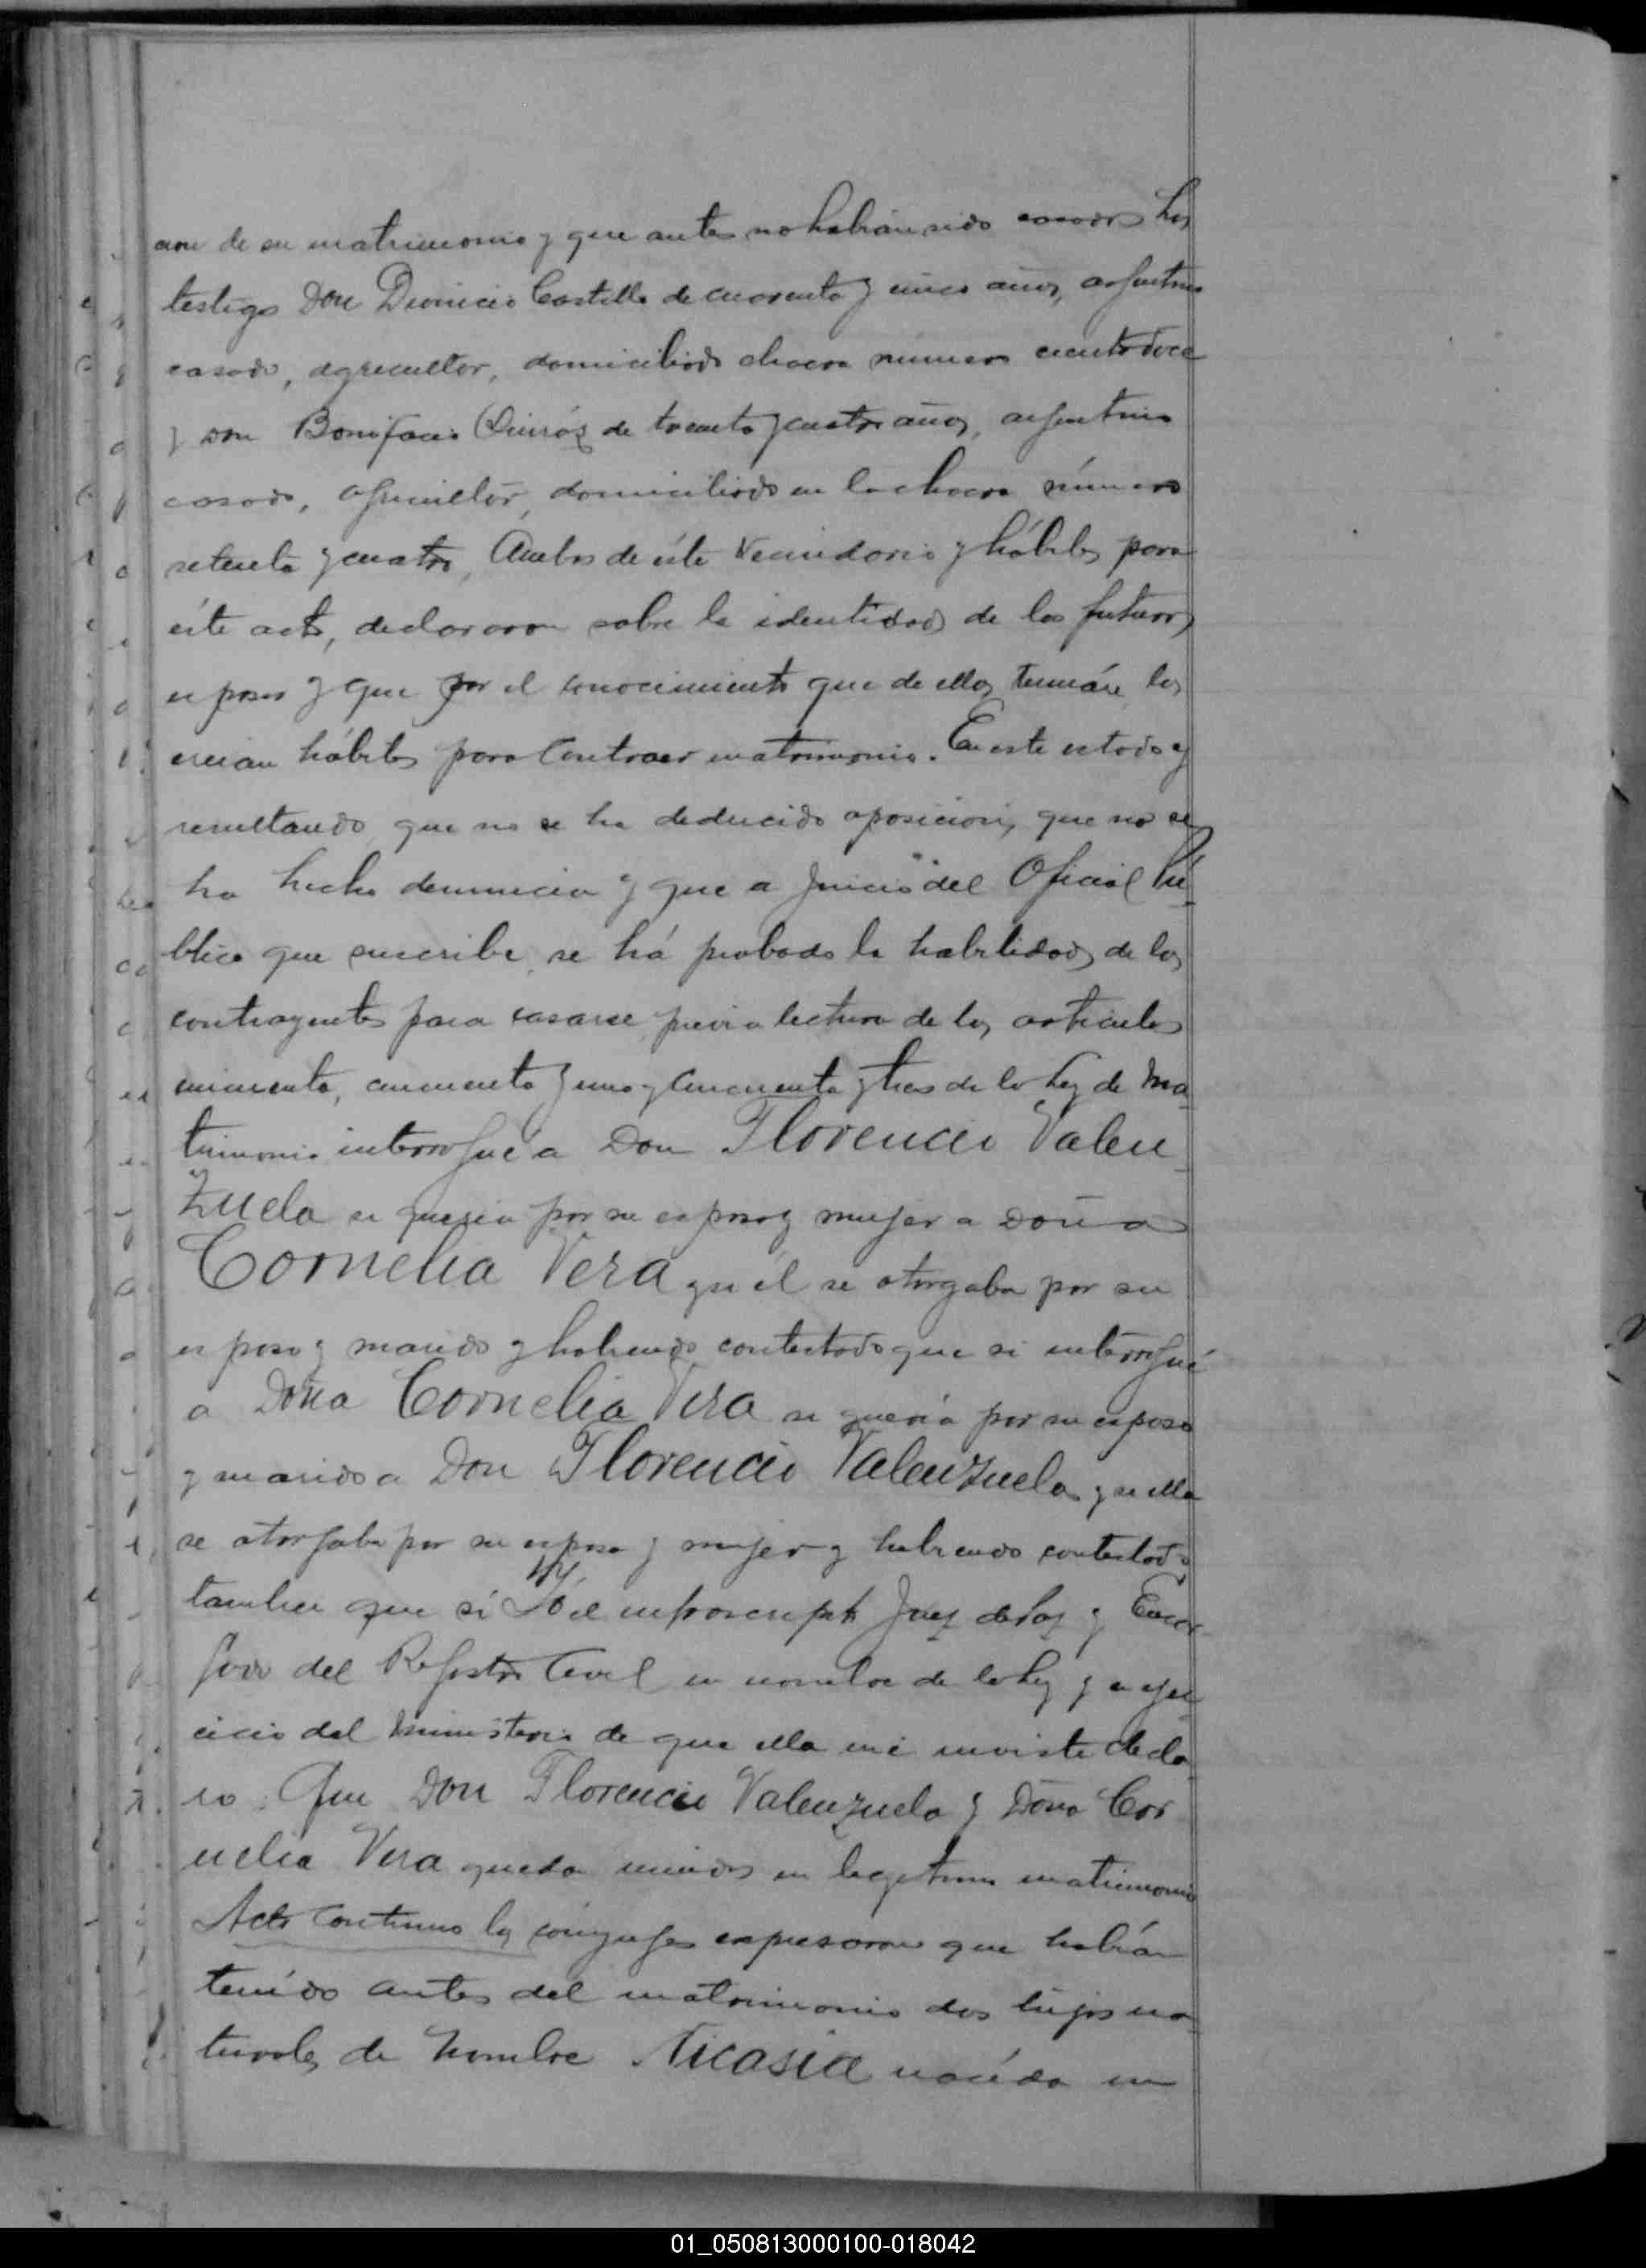 cion de su matrimonio y que antes no habian sido casados Los
testigos Don Dionicio Castillo de cuarenta y cinco años, argentino
casado, agricultor, domiciliado chacra número ciento doce
y don Bonifacio Quiróz de treinta y cuatro años, argentino
casado, agricultor, domiciliado en la chacra número
setenta y cuatro, Ambos de éste Vecindario y hábiles para
éste acto, declararon sobre la identidad de los futuros
esposos y que por el conocimiento que de ellos tienen los
creian hábiles para Contraer matrimonio. En este estado y
resultando que no se ha deducido oposición, que no se
ha hecho denuncia y que a juicio del Oficial Pú-
blico que suscribe, se há probado la habilidad de los
contrayentes para casarse, previa lectura de los articulos
cincuenta, cincuenta y uno y Cincuenta y tres de la Ley de Ma-
trimonio interrogué a Don Florencio Valen-
zuela si queria por su esposa y mujer a Doña
Cornelia Vera y si él se otorgaba por su
esposo y marido y habiendo contestado que si interrogué
a Doña Cornelia Vera si quería por su esposo
y marido a Don Florencio Valenzuela y si ella
se otorgaba por su esposa y mujer y habiendo contestado
tambien que sí Yó el infrascripto Juez de Paz y Encar-
gado del Registro Civil en nombre de la Ley y en ejer-
cicio del Ministerio de que ella me inviste decla-
ro: Que Don Florencio Valenzuela y Doña Cor-
nelia Vera quedan unidos en legitimo matrimonio
Acto Continuo los cónyuges expresaron que habían
tenído antes del matrimonio dos hijos na-
turales de nombre Nicasia nacída en
01_050813000100-018042